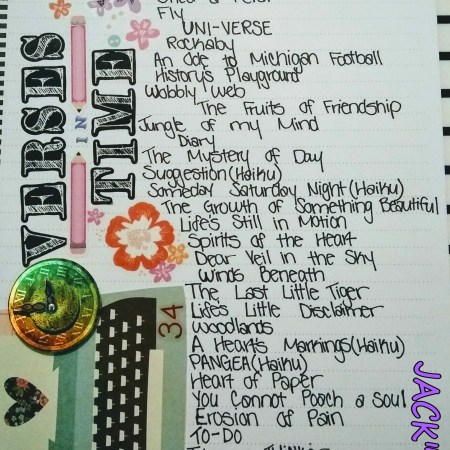 VERSES
IN
TIME
Fly
UNI-VERSE
Rockaby
An Ode to Michigan Football
History's Playground
Wobbly Web
The Fruits of Friendship
Jungle of my Mind
Diary
The Mystery of Day
Suggestion(Haiku)
Someday Saturday Night(Haiku)
The Growth of Something Beautiful
Life's Still in Motion
Spirits of the Heart
Dear Veil in the Sky
Winds Beneath
The Last Little Tiger
Life's Little Disclaimer
Woodlands
A Hearts Markings(Haiku)
PANGEA(Haiku)
Heart of Paper
You Cannot Poach a Soul
Erosion of Pain
TO-DO
34
JACK